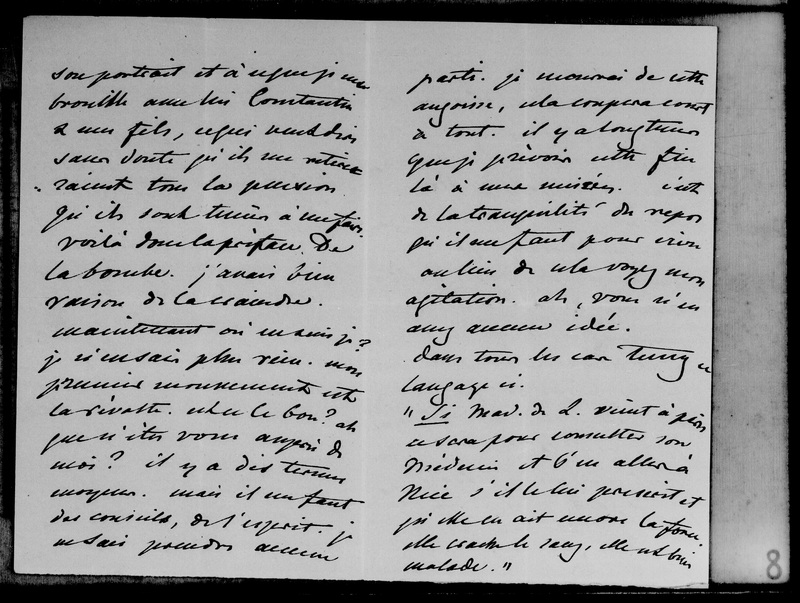 son portrait et à ce que je me
brouille avec lui Constantin
& mes fils, ce qui veut dire
sans doute qu'ils me retire
raient tous la pension
qu'ils sont tenus à me faire.
voilà donc la préface. De
la bombe. j'avais bien
raison de la craindre.
maintenant où en suis je?
je n'en sais plus rien. mon
premier mouvement est
la révolte. est ce le bon? ah
que n'êtes vous auprès de
moi? il y a des termes
moyens. mais il me faut
des conseils, de l'esprit. je
ne sais prendre aucun
parti. je mourrai de cette
angoisse, cela coupera court
à tout. il y a longtems
que je prévois cette fin
là à mes misères. c'est
de la tranquilité du repos
qu'il me faut pour vivre
au lieu de cela voyez mon
agitation. ah, vous n'en
avez aucune idée.
dans tous les cas tenez ce
langage ci.
" Si Mad. de L. vient à Paris
ce sera pour consulter son
médecin et s'en aller à
Nice s'il le lui prescrit et
qu'elle en ait encore la force.
elle crache le sang, elle est bien
malade. "
8